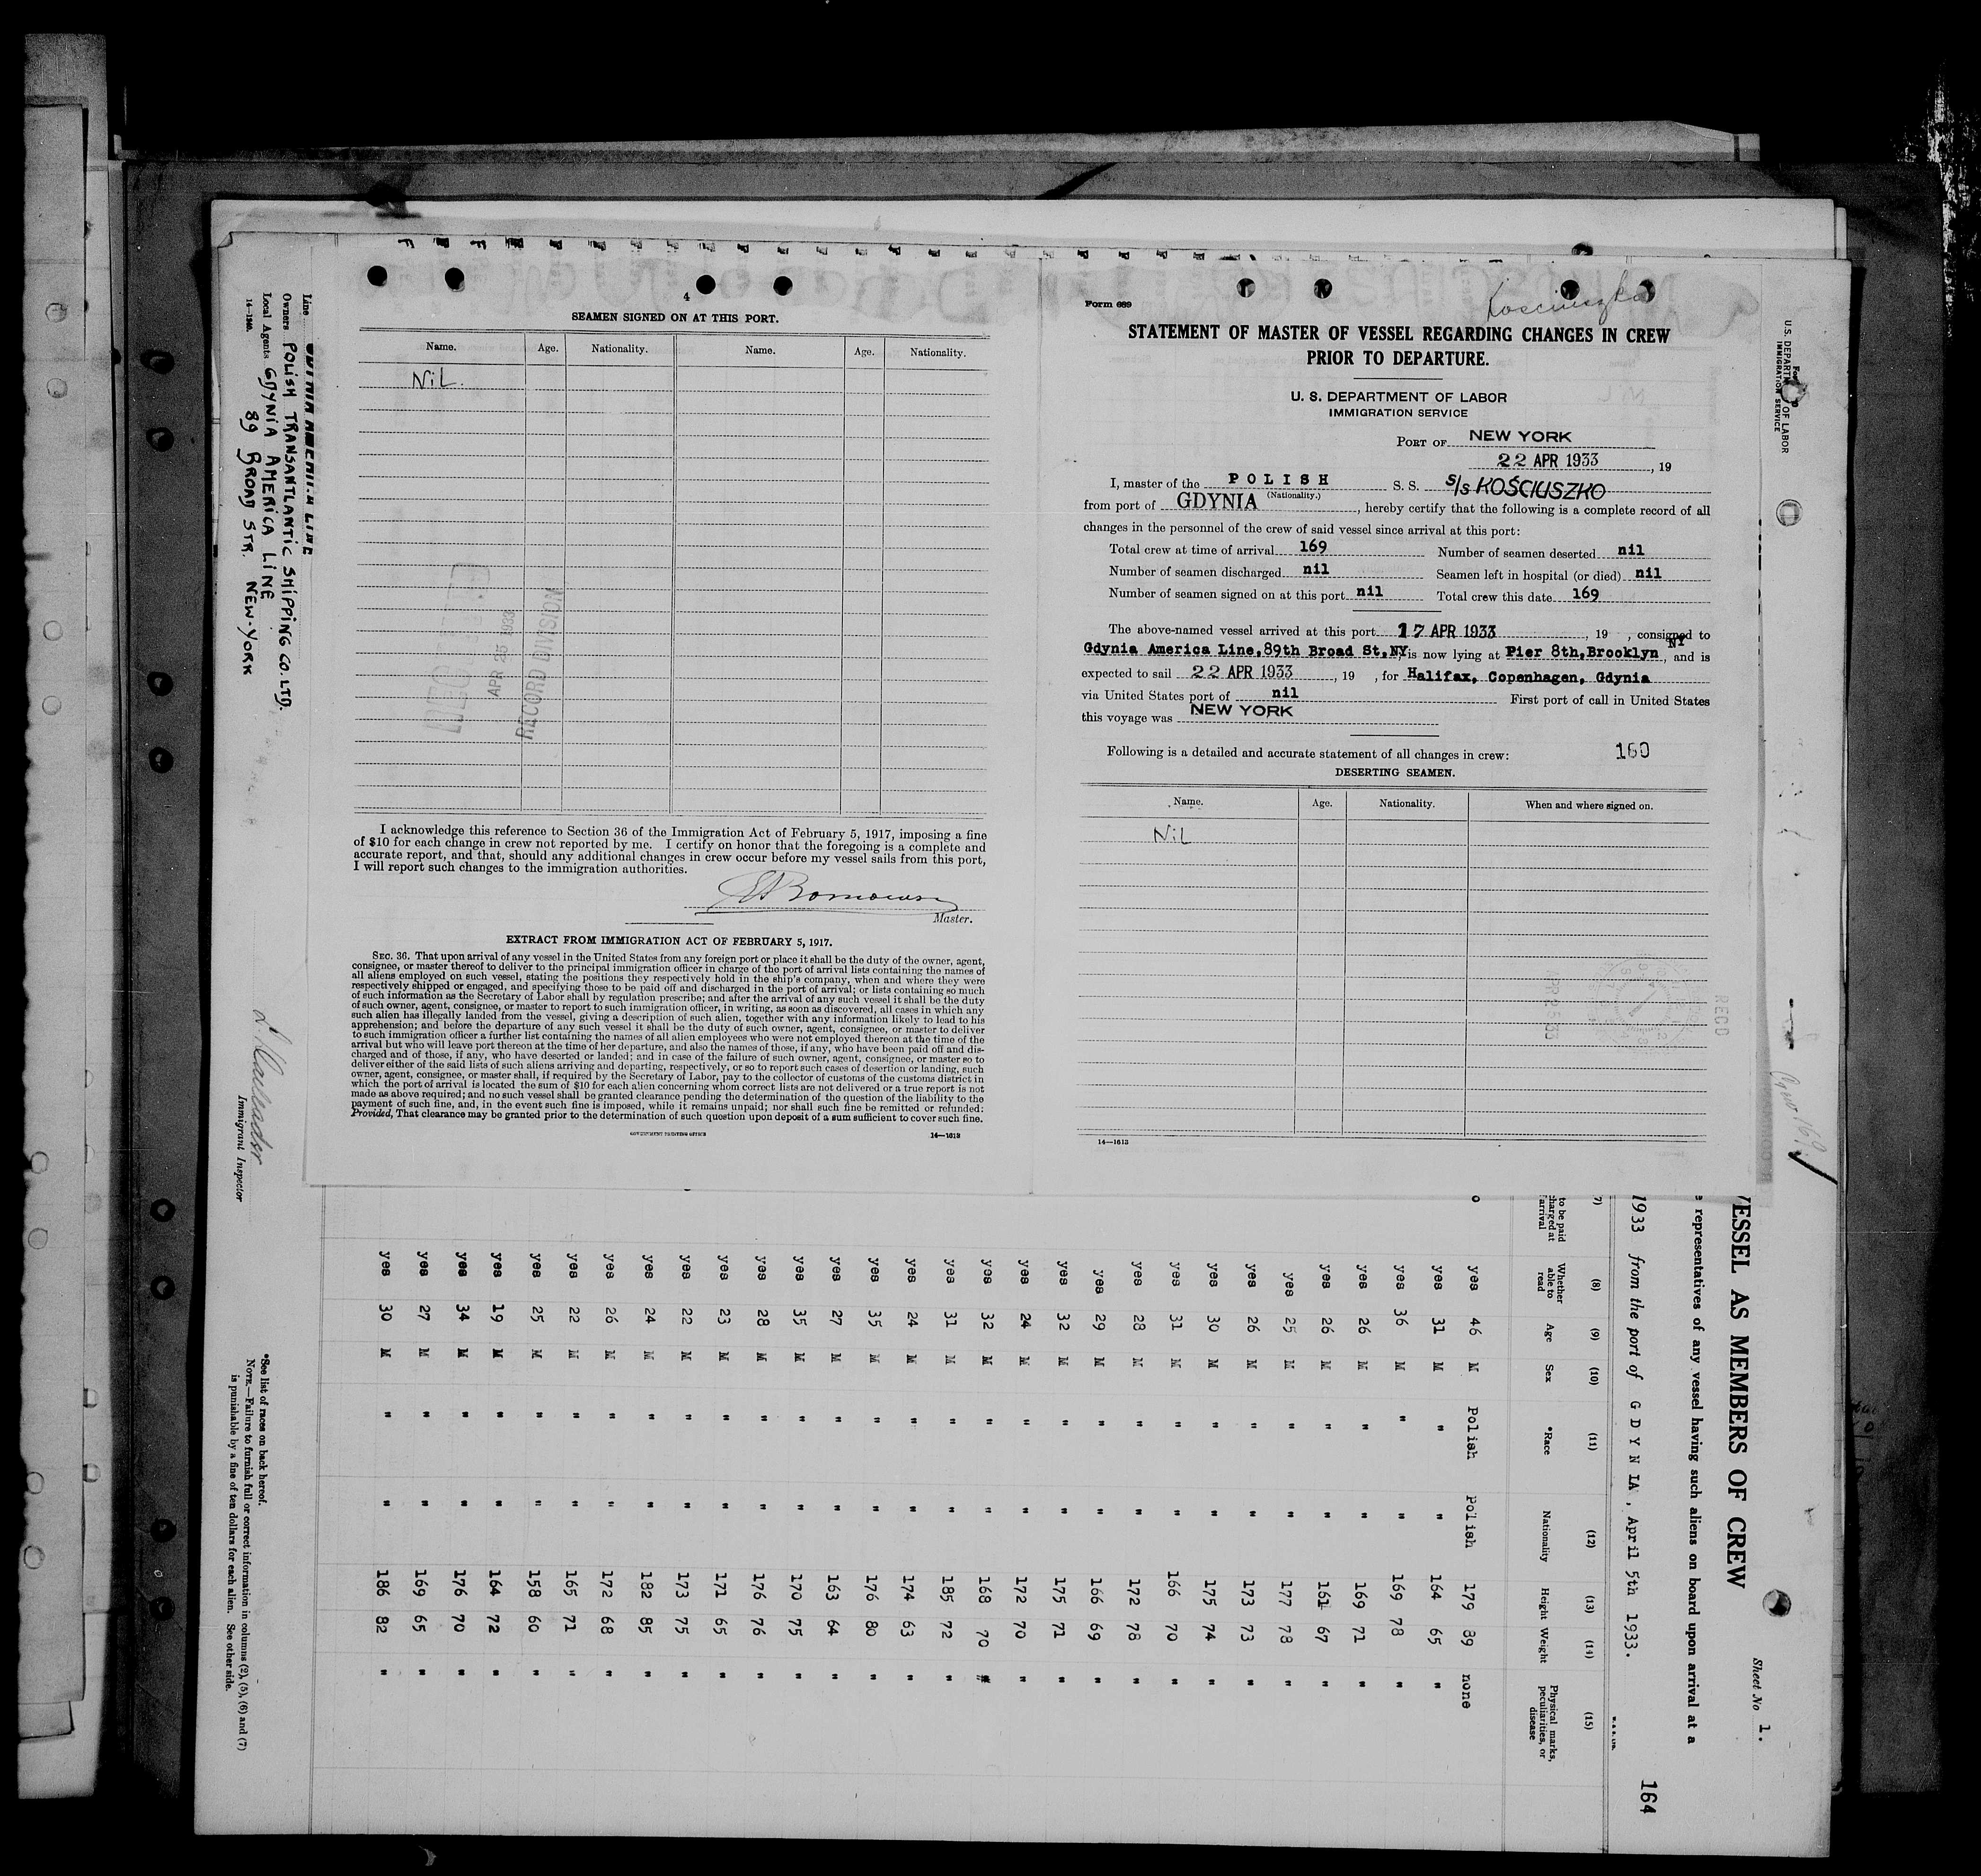 4
SEAMEN SIGNED ON AT THIS PORT.
Name. Age. Nationality. Name. Age. Nationality.
NiL.
APR 25 1933
RECORD DIVISION
I acknowledge this reference to Section 36 of the Immigration Act of February 5, 1917, imposing a fine
of $10 for each change in crew not reported by me. I certify on honor that the foregoing is a complete and
accurate report, and that, should any additional changes in crew occur before my vessel sails from this port,
I will report such changes to the immigration authorities.
Master.
EXTRACT FROM IMMIGRATION ACT OF FEBRUARY 5, 1917.
SEC. 36. That upon arrival of any vessel in the United States from any foreign port or place it shall be the duty of the owner, agent,
consignee, or master thereof to deliver to the principal immigration officer in charge of the port of arrival lists containing the names of
all aliens employed on such vessel, stating the positions they respectively hold in the ship's company, when and where they were
respectively shipped or engaged, and specifying those to be paid off and discharged in the port of arrival; or lists containing so much
of such information as the Secretary of Labor shall by regulation prescribe; and after the arrival of any such vessel it shall be the duty
of such owner, agent, consignee, or master to report to such immigration officer, in writing, as soon as discovered, all cases in which any
such alien has illegally landed from the vessel, giving a description of such alien, together with any information likely to lead to his
apprehension; and before the departure of any such vessel it shall be the duty of such owner, agent, consignee, or master to deliver
to such immigration officer a further list containing the names of all alien employees who were not employed thereon at the time of the
arrival but who will leave port thereon at the time of her departure, and also the names of those, if any, who have been paid off and dis-
charged and of those, if any, who have deserted or landed; and in case of the failure of such owner, agent, consignee, or master so to
deliver either of the said lists of such aliens arriving and departing, respectively, or so to report such cases of desertion or landing, such
owner, agent, consignee, or master shall, if required by the Secretary of Labor, pay to the collector of customs of the customs district in
which the port of arrival is located the sum of $10 for each alien concerning whom correct lists are not delivered or a true report is not
made as above required; and no such vessel shall be granted clearance pending the determination of the question of the liability to the
payment of such fine, and, in the event such fine is imposed, while it remains unpaid; nor shall such fine be remitted or refunded:
Provided, That clearance may be granted prior to the determination of such question upon deposit of a sum sufficient to cover such fine.
GOVERNMENT PRINTING OFFICE 14—1613
Form 689
Kosciuszko
STATEMENT OF MASTER OF VESSEL REGARDING CHANGES IN CREW
PRIOR TO DEPARTURE.
U. S. DEPARTMENT OF LABOR
IMMIGRATION SERVICE
PORT OF NEW YORK
22 APR 1933, 19
I, master of the POLISH S. S. S/S KOŚCIUSZKO
(Nationality.)
from port of GDYNIA, hereby certify that the following is a complete record of all
changes in the personnel of the crew of said vessel since arrival at this port:
Total crew at time of arrival 169 Number of seamen deserted nil
Number of seamen discharged nil Seamen left in hospital (or died) nil
Number of seamen signed on at this port nil Total crew this date 169
The above-named vessel arrived at this port 17 APR 1933, 19 , consigned to
Gdynia America Line,89th Broad St,NY, is now lying at Pier 8th,Brooklyn NY, and is
expected to sail 22 APR 1933, 19 , for Halifax, Copenhagen, Gdynia
via United States port of nil First port of call in United States
this voyage was NEW YORK
Following is a detailed and accurate statement of all changes in crew: 160
DESERTING SEAMEN.
Name. Age. Nationality. When and where signed on.
NiL
14—1613
RECD
Line GDYNIA AMERICA LINE
Owners POLISH TRANSATLANTIC SHIPPING CO. LTD.
Local Agents GDYNIA AMERICA LINE
89 BROAD STR. NEW-YORK
14—1240.
Immigrant Inspector
U.S. DEPARTMENT OF LABOR
IMMIGRATION SERVICE
Sheet No 1.
VESSEL AS MEMBERS OF CREW
representatives of any vessel having such aliens on board upon arrival at a
1933 from the port of GDYNIA, April 5th 1933.
164
(7) (8) (9) (10) (11) (12) (13) (14) (15)
to be paid
charged at
arrival
Whether
able to
read
Age Sex *Race Nationality Height Weight
Physical marks,
peculiarities, or
disease
yes 46 M Polish Polish 179 89 none
yes 31 M " " 164 65 "
yes 36 M " " 169 78 "
yes 26 M " " 169 71 "
yes 26 M " " 161 67 "
yes 25 M " " 177 78 "
yes 26 M " " 173 73 "
yes 30 M " " 175 74 "
yes 31 M " " 166 70 "
yes 28 M " " 172 78 "
yes 29 M " " 166 69 "
yes 32 M " " 175 71 "
yes 24 M " " 172 70 "
yes 32 M " " 168 70 "
yes 31 M " " 185 72 "
yes 24 M " " 174 63 "
yes 35 M " " 176 80 "
yes 27 M " " 163 64 "
yes 35 M " " 170 75 "
yes 28 M " " 176 76 "
yes 23 M " " 171 65 "
yes 22 M " " 173 75 "
yes 24 M " " 182 85 "
yes 26 M " " 172 68 "
yes 22 M " " 165 71 "
yes 25 M " " 158 60 "
yes 19 M " " 164 72 "
yes 34 M " " 176 70 "
yes 27 M " " 169 65 "
yes 30 M " " 186 82 "
*See list of races on back hereof.
NOTE.—Failure to furnish full or correct information in columns (2), (5), (6) and (7)
is punishable by a fine of ten dollars for each alien. See other side.